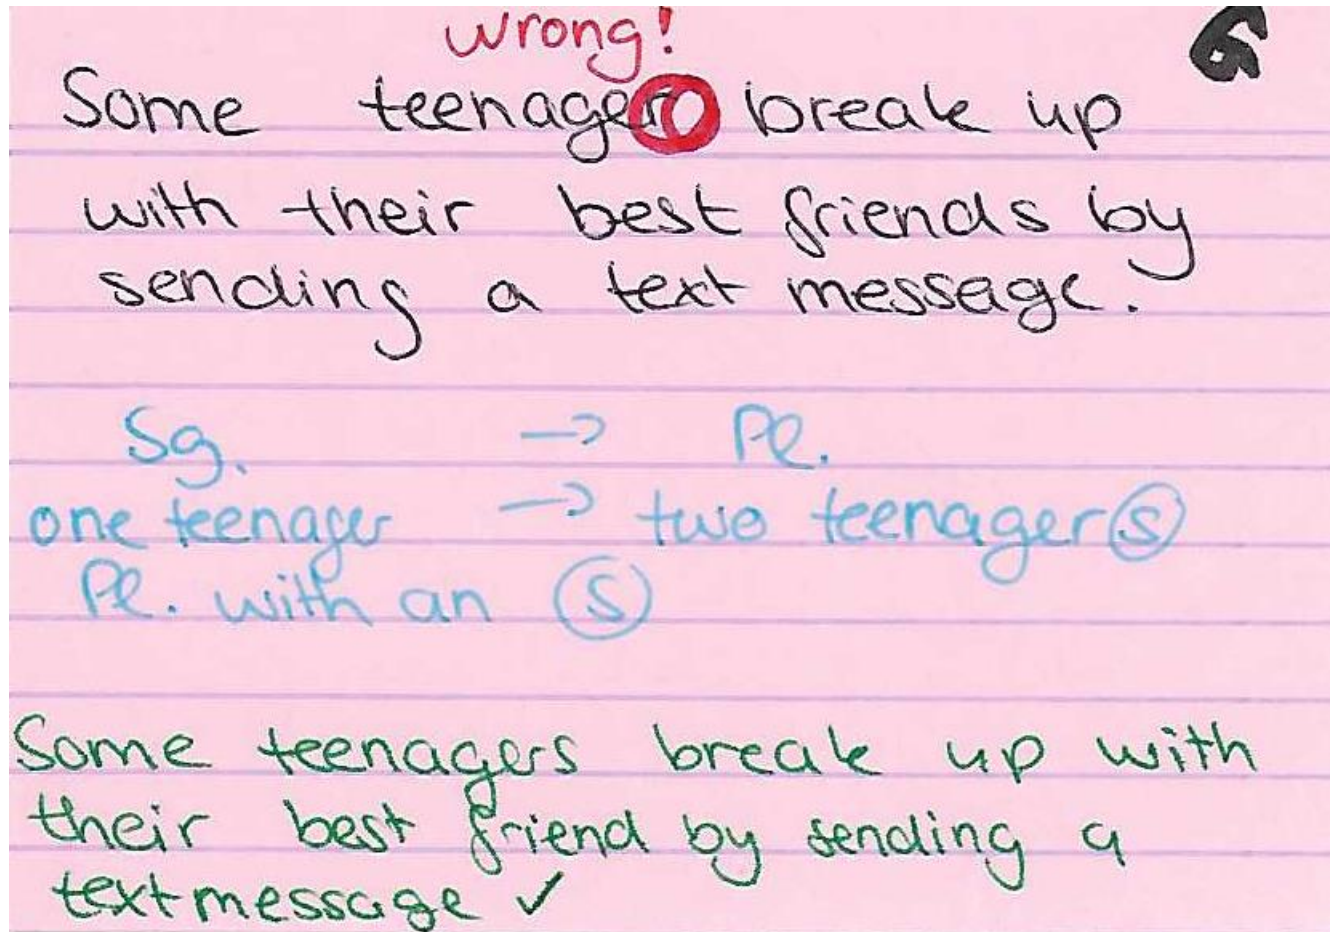 wrong!
6
Some teenager break up
with their best friends by
sending a text message.
Sg. → Pl.
one teenager → two teenagers
Pl. with an s
Some teenagers break up with
their best friend by sending a
textmessage ✓